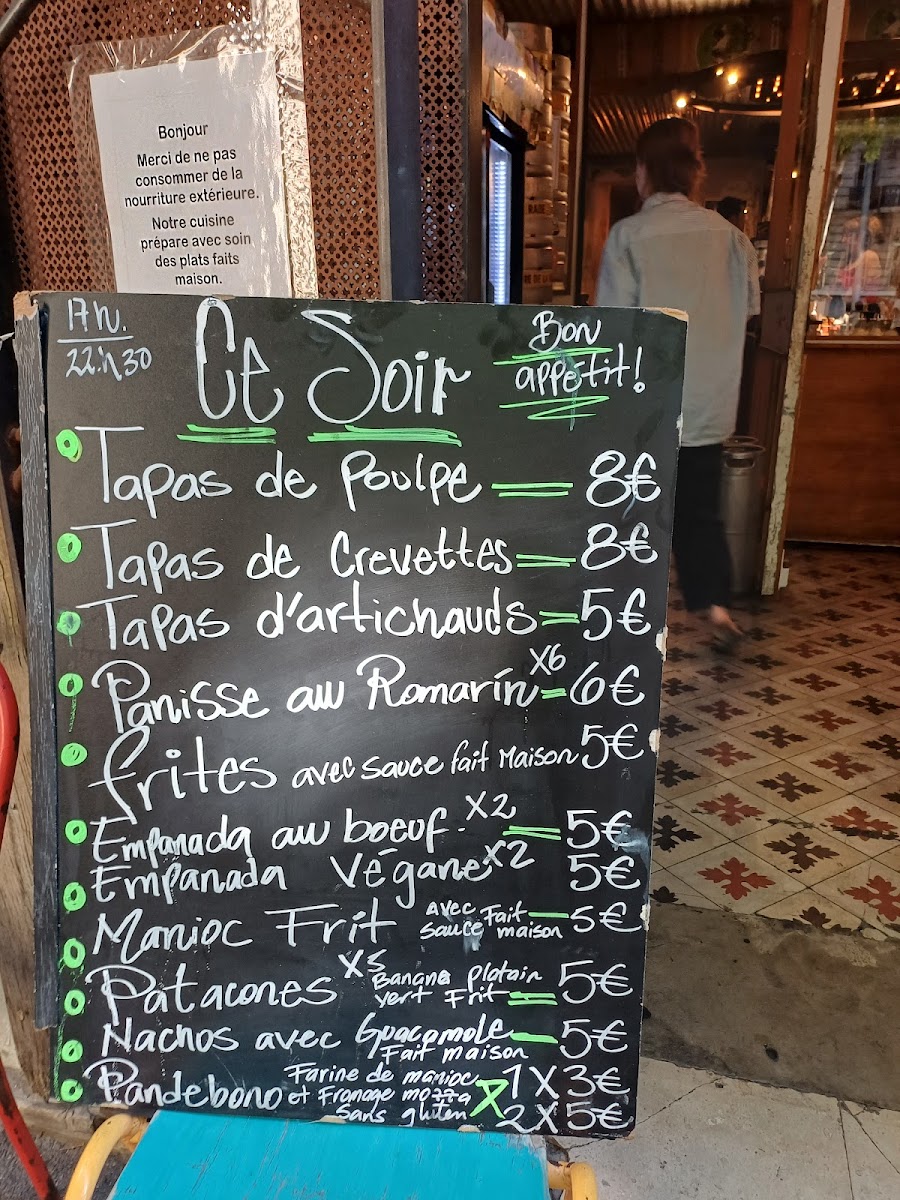 Bonjour
Merci de ne pas
consommer de la
nourriture extérieure.
Notre cuisine
prépare avec soin
des plats faits
maison.
17h.
22h30
Ce Soir
Bon
appétit!
Tapas de Poulpe = 8€
Tapas de Crevettes = 8€
Tapas d'artichauds = 5€
Panisse au Romarin x6 = 6€
Frites avec sauce fait Maison 5€
Empanada au boeuf. x2 = 5€
Empanada Végane x2 5€
Manioc Frit avec sauce Fait maison - 5€
Patacones x5 Banane plotain vert Frit = 5€
Nachos avec Guacomole - 5€
Fait maison
Pandebono Farine de manioc et Fromage mozza Sans gluten 1X3€
2X5€